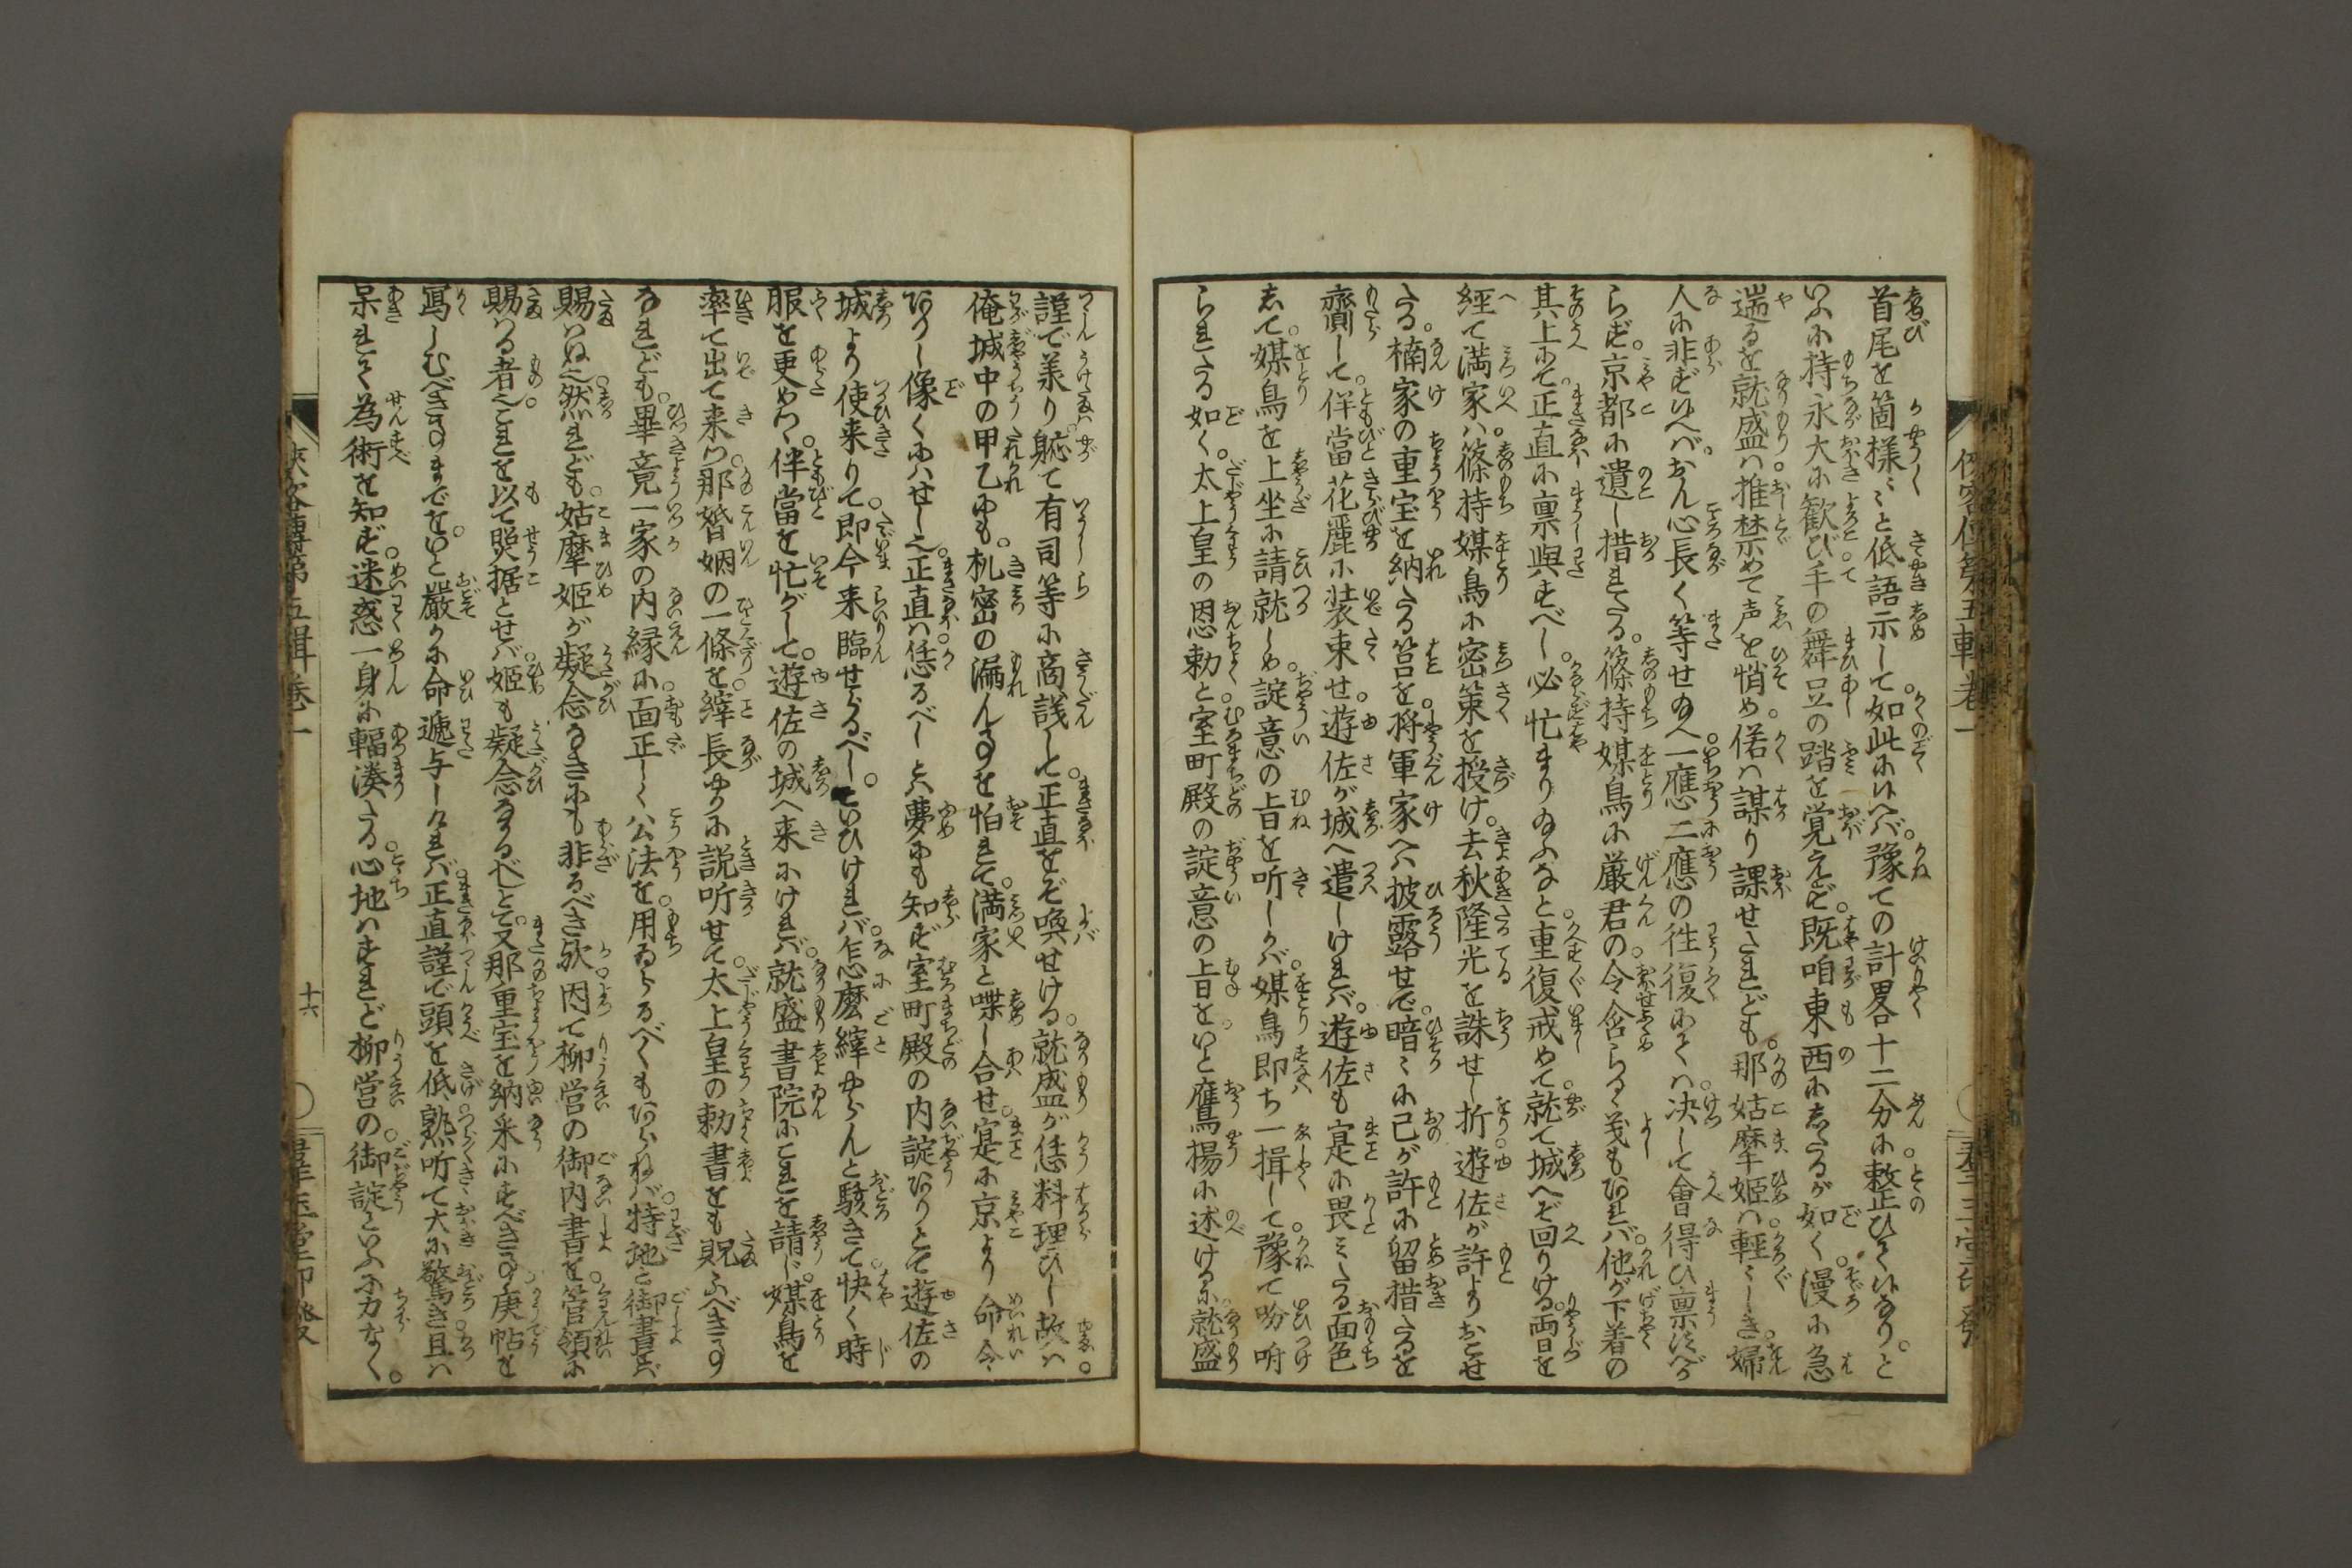 首尾を箇様々々と低語示して如此いへば。豫ての計畧十二分に整ひいなり。と
いふに持永大に歓び手の舞足の踏を覚えず。既咱東西にしたるが如く。漫に急
遄るを就盛は推禁めて声を悄め。偌は謀り課せたれども。那姑摩姫は軽々しき。婦
人に非ずいへば。おん心長く等せ給へ。一應二應の徃復にては。决して會得ひ稟いべか
らず。京都に遺し措れたる。篠持媒鳥に厳君の。令含らるゝ義もあれば。他が下着の
其上にて。正直に禀與すべし。必忙まり給ふなと重復戒めて。就て城へぞ回りける。両日を
経て満家は。篠持媒鳥に密策を授け。去秋隆光を誅せし折遊佐が許よりおこせ
たる。楠家の重宝を納たる筥を。将軍家へは披露せで。暗々に己が許に留措たるを
齎して。伴當花麗に装束せ。遊佐が城へ遣しければ。遊佐も寔に畏みたる面色
して。媒鳥を上坐に請就しめ。諚意の旨を听しかば。媒鳥即ち一揖して。豫て吩咐
られたる如く。太上皇の恩勅と。室町殿の諚意の旨を。いと鷹揚に述ける。就盛
謹で義り。軈て有司等に商議して。正直をぞ喚せける。就盛が恁料理ひし故は。
俺城中の甲乙にも。机密の漏んことを怕れて。満家と喋し合せ。寔に京より命令
ありし像くにはせし也。正直は恁るべしとは夢にも知ず。室町殿の内諚ありとて遊佐の
城より使来りて。即今来臨せらるべし。といひければ。怎麽縡やらんと駭きて。快く時
服を更めつゝ。伴當を忙がして。遊佐の城へ来にければ。就盛書院にこれを請じ。媒鳥を
率て出て来つ。那婚姻の一條を。縡長やかに説听せて。太上皇の勅書をも賜ふべきこと
なれども。畢竟一家の内縁に。面正しく公法を。用ゐらるべくもあらねば。特地と御書をば
賜はぬ也。然れども。姑摩姫が疑念なきにも非るべき歟。因て柳営の御内書を。管領に
賜はる者也。これを以て照据とせば。姫も疑念なかるべしとて。又那重宝を納釆にすべきこと。庚帖を
寫しむべきことまでを。いと嚴かに命逓与しければ。正直謹で頭を低。熟听て大に驚き且は
呆れて。為術を知ず。迷惑一身に輻湊たる。心地はすれど柳営の。御諚といふに力なく。
俠客傳第五輯巻一
十六